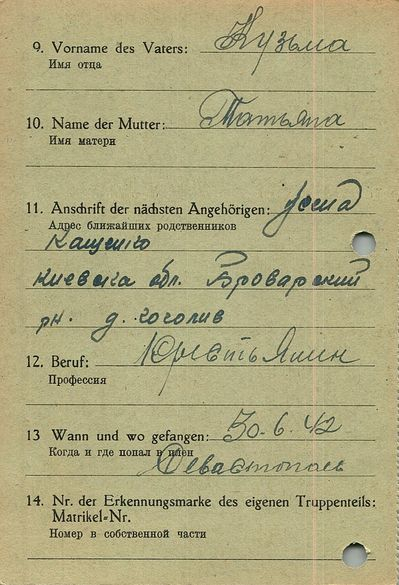 9. Vorname des Vaters: Кузьма
Имя отца
10. Name der Mutter: Татьяна
Имя матери
11. Anschrift der nächsten Angehörigen:
Адрес ближайших родственников
Кащенко
Киевска обл. Броварский
рн. д. гоголив
12. Beruf: Крестьянин
Профессия
13 Wann und wo gefangen: 30.6.42
Когда и где попал в плен
Севастополь
14. Nr. der Erkennungsmarke des eigenen Truppenteils:
Matrikel-Nr.
Номер в собственной части